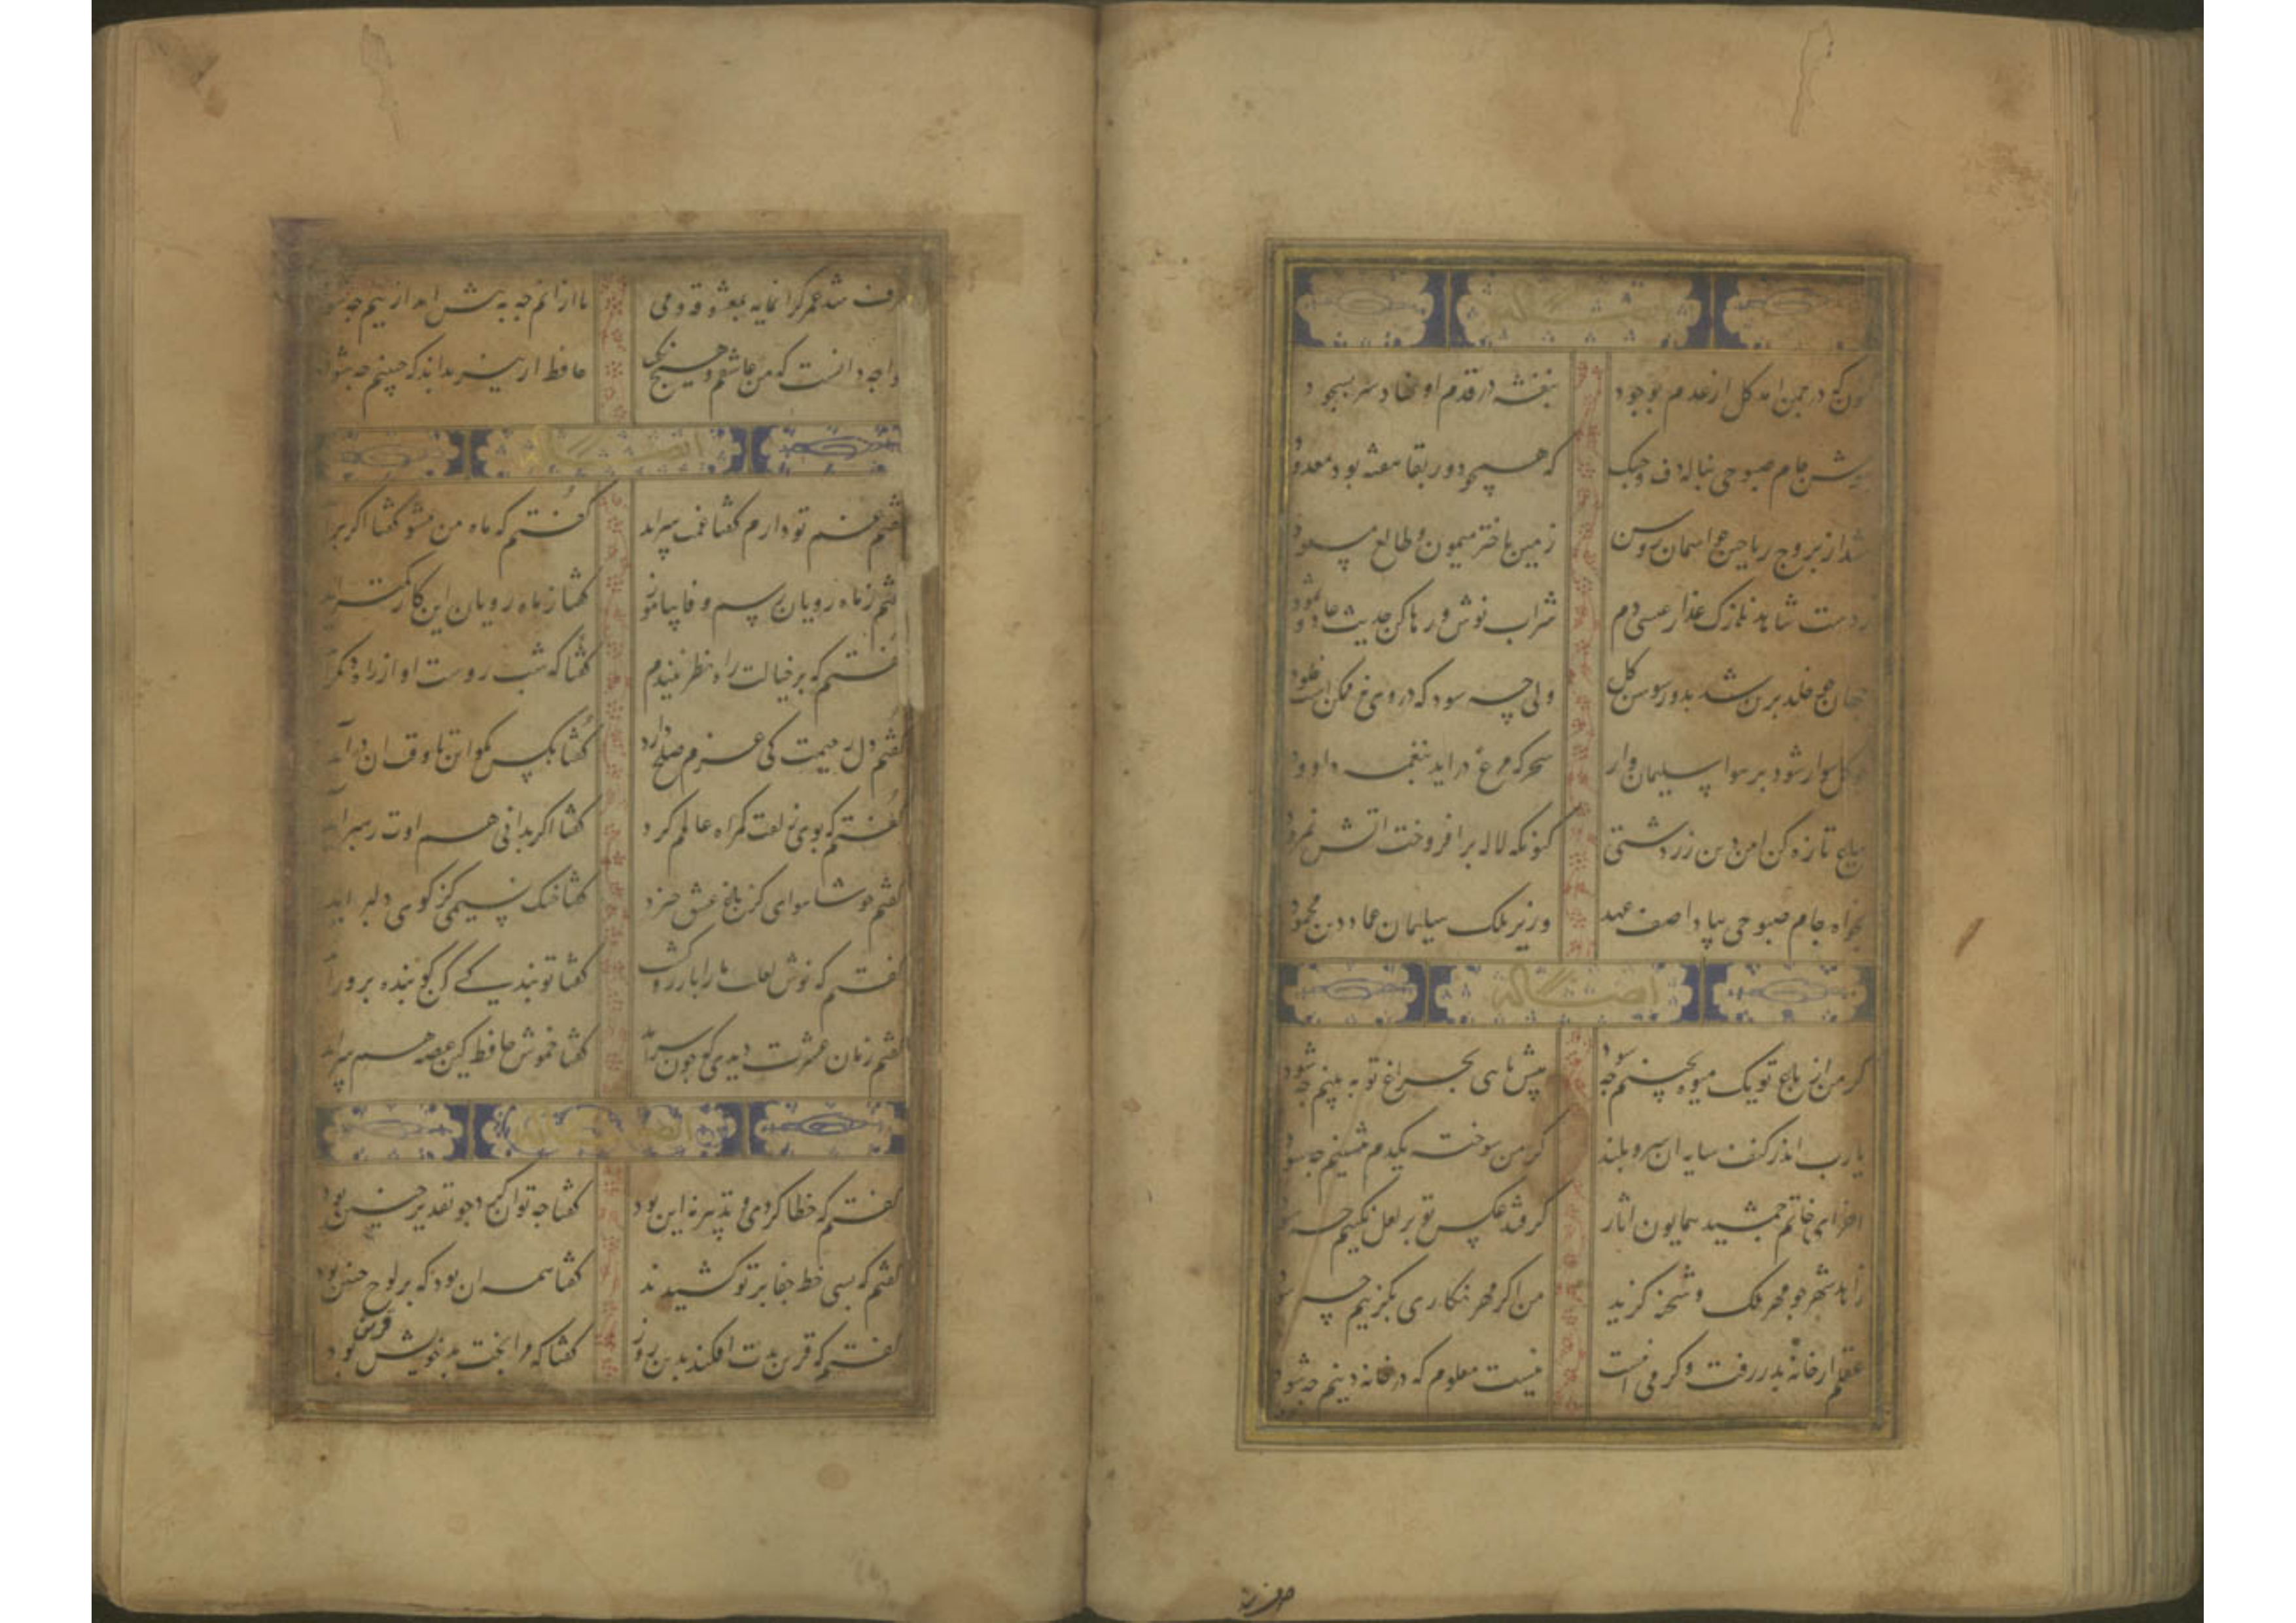 کنون که در چمن امد کل از عدم بوجود
بنفشه در قدم او نهاد سر بسجود
بنوش جام صبوحی بناله دف و چنک
که همچو دور بقا هفته بود معدود
شد از بروج ریاحین جو اسمان روشن
زمین باختر میمون و طالع مسعود
زدست شاهد نازک عذار عیسی دم
شراب نوش و رها کن حدیث عاد و ثمود
جهان جو خلد برین شد بدور سوسن کل
ولی چه سود که در وی نه ممکن است خلود
جو کل سوار شود بر هوا سلیمان وار
سحر که مرغ در اید بنغمه داوود
بباغ تازه کن امین دین زردشتی
کنونکه لاله برافروخت اتش نمرود
بخواه جام صبوحی بیاد اصف عهد
وزیر ملک سلیمان عماد دین محمود
ایضاً له
کر من از باغ تو یک میوه بچینم جه شود
پیش پای بجراغ تو به بینم جه شود
یارب اندر کنف سایه ان سرو بلند
کر من سوخته یکدم بنشینم جه شود
اخر ای خاتم جمشید همایون اثار
کر فتد عکس تو بر لعل نکینم جه شود
زاهد شهر جو مهر ملک و شحنه کزید
من اکر مهر نکاری بکزینم چه شود
عقلم از خانه بدر رفت و کر می اینست
نیست معلوم که در خانه دینم جه شود
صرف شد عمر کرانمایه بمعشوقه و می
تا از انم جه به پیش اید ازینم جه شود
خواجه دانست که من عاشقم و هیچ نکفت
حافظ ار نیز بداند که چنینم جه شود
ایضاً له
کفتم غم تو دارم کفتا غمت سراید
کفتم که ماه من شو کفتا اکر براید
کفتم زماه رویان رسم وفا بیاموز
کفتا زماه رویان این کار کمتر اید
کفتم که بر خیالت راه نظر ببندم
کفتا که شب روست او از راه دیکر آید
کفتم دل رحیمت کی عزم صلح دارد
کفتا بکس مکو این تا وقت ان درآید
کفتم که بوی زلفت کمراه عالمم کرد
کفتا اکر بدانی هم اوت رهبر آید
کفتم خوشا هوای کز باغ عشق خیزد
کفتا خنک نسیمی کز کوی دلبر اید
کفتم که نوش لعلت ما را بارزو کشت
کفتا تو بندکی کن کو بنده پرور آید
کفتم زمان عشرت دیدی که جون سرآمد
کفتا خموش حافظ کین غصه هم سراید
کفتم که خطا کردی و تدبیر نه این بود
کفتا جه توان کرد جو تقدیر چنین بود
کفتم که بسی خط جفا بر تو کشیدند
کفتا همه ان بود که بر لوح جبین بود
کفتم که قرین بدت افکند بدین روز
کفتا که مرا بخت بد خویش قرین بود
صرف شد